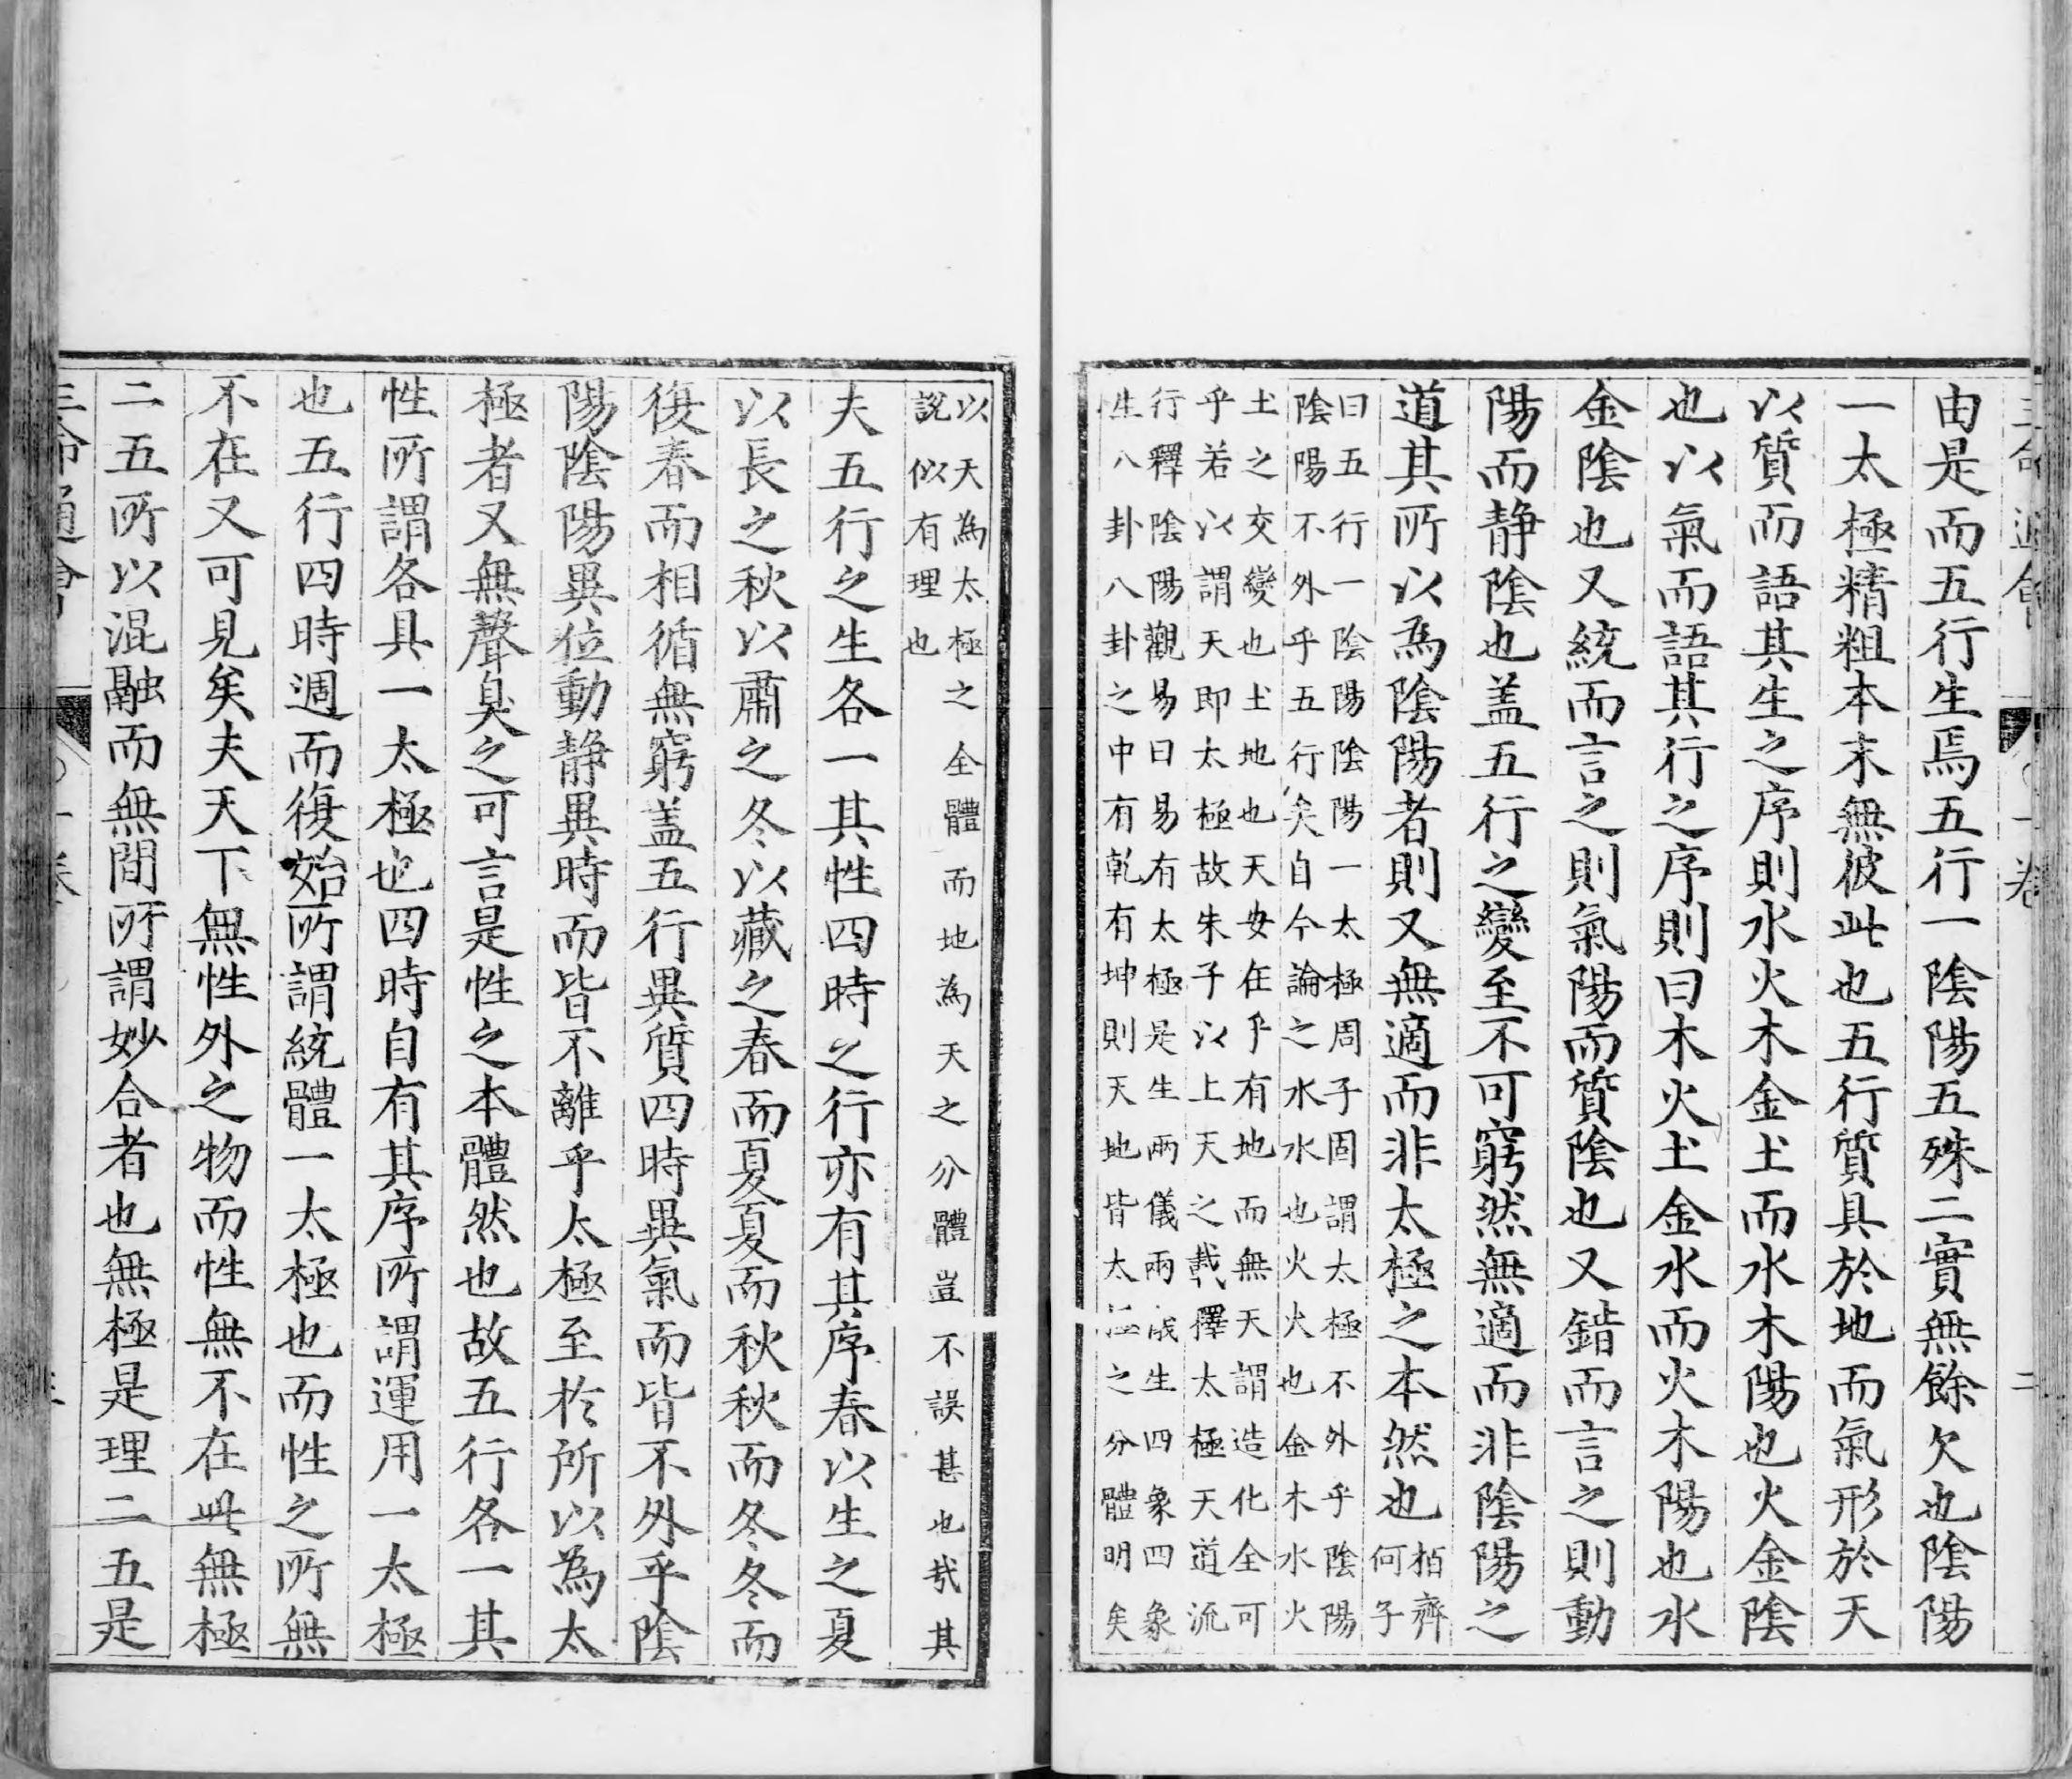 由是而五行生焉五行一陰陽五殊二實無餘欠也陰陽
一太極精粗本末無彼此也五行質具於地而氣形於天
以質而語其生之序則水火木金土而水木陽也火金陰
也以氣而語其行之序則曰木火土金水而火木陽也水
金陰也又統而言之則氣陽而質陰也又錯而言之則動
陽而静陰也盖五行之變至不可窮然無適而非陰陽之
道其所以為陰陽者則又無適而非太極之本然也
栢齊
何子
曰五行一陰陽陰陽一太極周子固謂太極不外乎陰陽
陰陽不外乎五行矣自今論之水水也火火也金木水火
土之交變也土地也天安在乎有地而無天謂造化全可
乎若以謂天即太極故朱子以上天之載釋太極天道流
行釋陰陽觀易曰易有太極是生兩儀兩儀生四象四象
生八卦八卦之中有乾有坤則天地皆太極之分體明矣
以天為太極之全體而地為天之分體豈不誤甚也哉其
說似有理也
夫五行之生各一其性四時之行亦有其序春以生之夏
以長之秋以肅之冬以藏之春而夏夏而秋秋而冬冬而
復春而相循無窮盖五行異質四時異氣而皆不外乎陰
陽陰陽異位動静異時而皆不離乎太極至於所以為太
極者又無聲臭之可言是性之本體然也故五行各一其
性所謂各具一太極也四時自有其序所謂運用一太極
也五行四時週而復始所謂統體一太極也而性之所無
不在又可見矣夫天下無性外之物而性無不在此無極
二五所以混融而無間所謂妙合者也無極是理二五是
三命通會